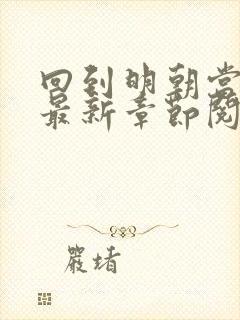 回到明朝当
最新章节阅
严堵